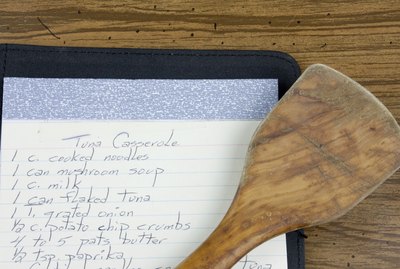 Tuna Casserole
1 c. cooked noodles
1 can mushroom soup
1 c. milk
1 can flaked tuna
1 T. grated onion
1/2 c. potato chip crumbs
4 to 5 pats butter
1/2 tsp. paprika
tuna